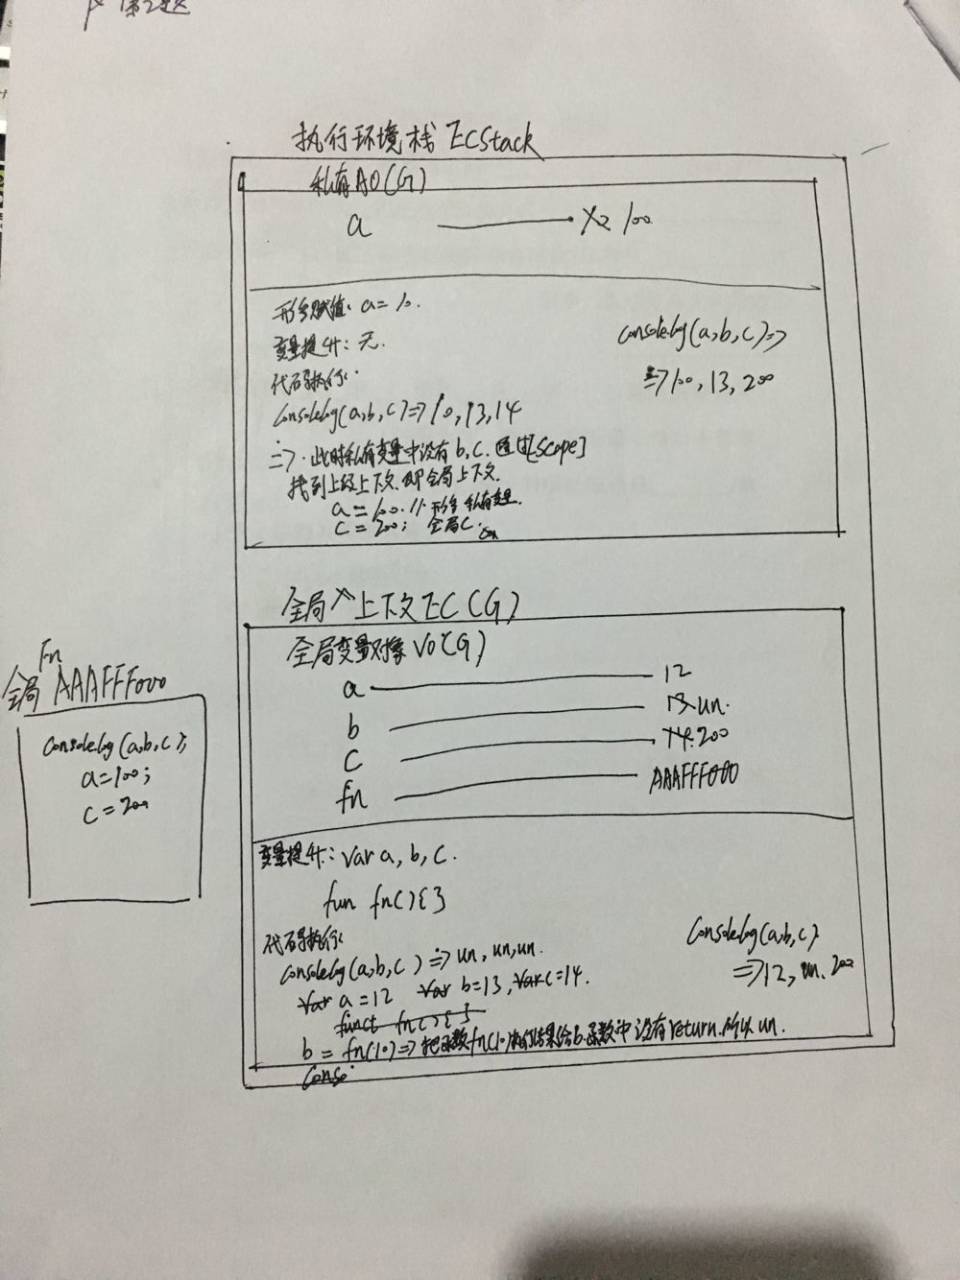 第2题
执行环境栈 ECStack
私有AO(G)
a 100
形参赋值: a=10.
变量提升: 无.
代码执行:
Console.log(a,b,c)=>10,13,14
=>.此时私有变量中没有b,c.通过[scope]
找到上级上下文.即全局上下文.
a=100.//形参 私有变量
c=200; 全局C.
Console.log(a,b,c)=>
=>100,13,200
全局上下文EC(G)
全局变量对象VO(G)
a 12
b 13.un.
c 14.200
fn AAAFFF000
变量提升: var a, b, c.
fun fn(){}
代码执行:
Console.log(a,b,c)=>un,un,un.
var a=12 var b=13, var c=14.
funct fn(){}
b = fn(10)=>把函数fn(10)执行结果给b.函数中没有return.所以un.
Conso
Console.log(a,b,c)
=>12,un.200
Fn
全局 AAAFFF000
Console.log(a,b,c);
a=100;
c=200